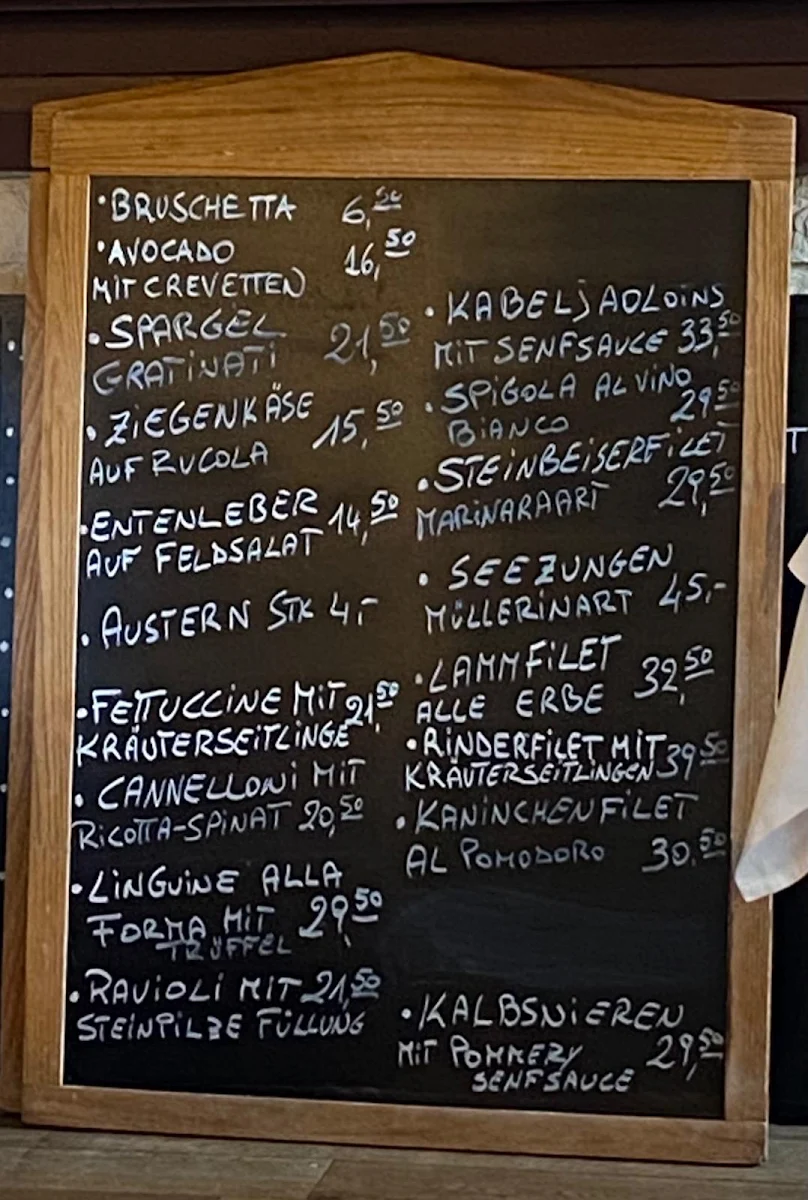 • BRUSCHETTA 6,50
• AVOCADO 16,50
MIT CREVETTEN
• SPARGEL
GRATINATI 21,50
• ZIEGENKÄSE
AUF RUCOLA 15,50
• ENTENLEBER 14,50
AUF FELDSALAT
• AUSTERN STK 4,-
• FETTUCCINE MIT 21,50
KRÄUTERSEITLINGE
• CANNELLONI MIT
RICOTTA-SPINAT 20,50
• LINGUINE ALLA
FORMA MIT 29,50
TRÜFFEL
• RAVIOLI MIT 21,50
STEINPILZE FÜLLUNG
• KABELJAOLOINS
MIT SENFSAUCE 33,50
• SPIGOLA AL VINO
BIANCO 29,50
• STEINBEISERFILET
MARINARAART 29,50
• SEEZUNGEN
MÜLLERINART 45,-
• LAMMFILET
ALLE ERBE 32,50
• RINDERFILET MIT
KRÄUTERSEITLINGEN 39,50
• KANINCHENFILET
AL POMODORO 30,50
• KALBSNIEREN
MIT POMMERY 29,50
SENFSAUCE
T